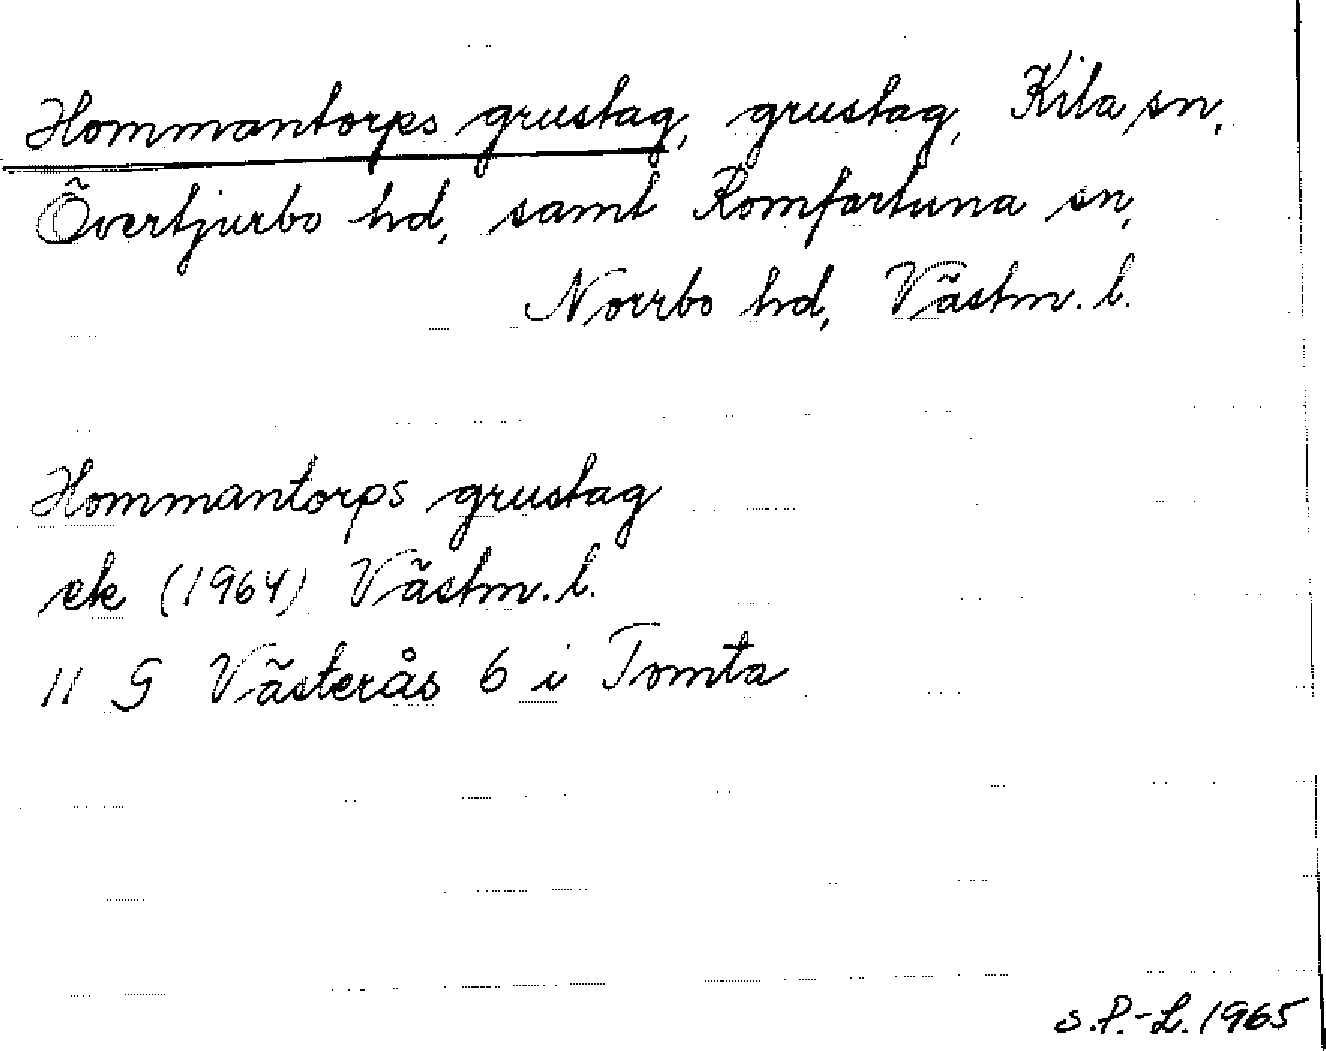 Hommantorps grustag, grustag, Kila sn,
Övertjurbo hd, samt Romfartuna sn,
Norrbo hd, Västm. l.
Hommantorps grustag
ek (1964) Västm. l.
11 G Västerås 6 i Tomta
S.P.-L. 1965